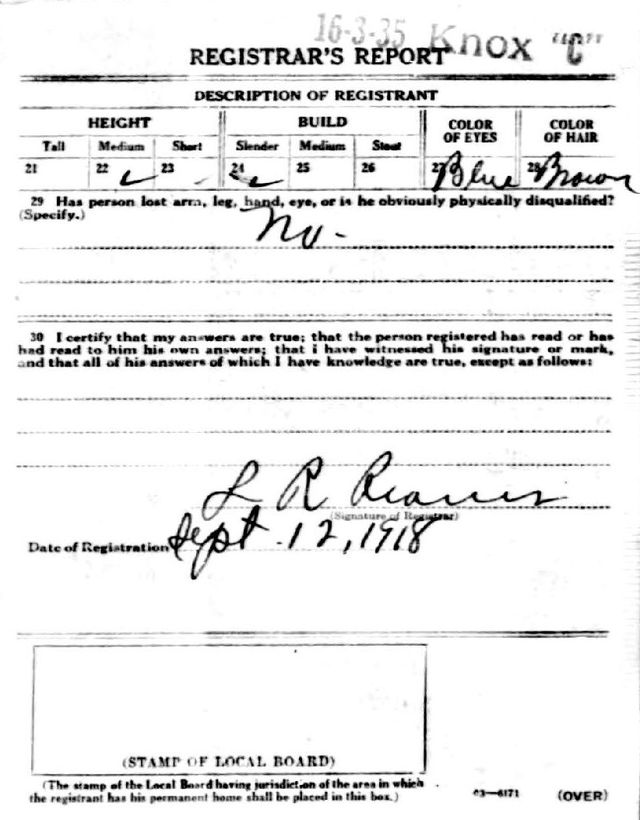 16-3-35 Knox "C"
REGISTRAR'S REPORT
DESCRIPTION OF REGISTRANT
HEIGHT BUILD COLOR OF EYES COLOR OF HAIR
Tall Medium Short Slender Medium Stout
21 22 23 24 25 26 27 Blue 28 Brown
29 Has person lost arm, leg, hand, eye, or is he obviously physically disqualified?
(Specify.)
No -
30 I certify that my answers are true; that the person registered has read or has
had read to him his own answers; that I have witnessed his signature or mark,
and that all of his answers of which I have knowledge are true, except as follows:
L R
(Signature of Registrar)
Date of Registration Sept. 12, 1918
(STAMP OF LOCAL BOARD)
(The stamp of the Local Board having jurisdiction of the area in which
the registrant has his permanent home shall be placed in this box.)
03—6171 (OVER)